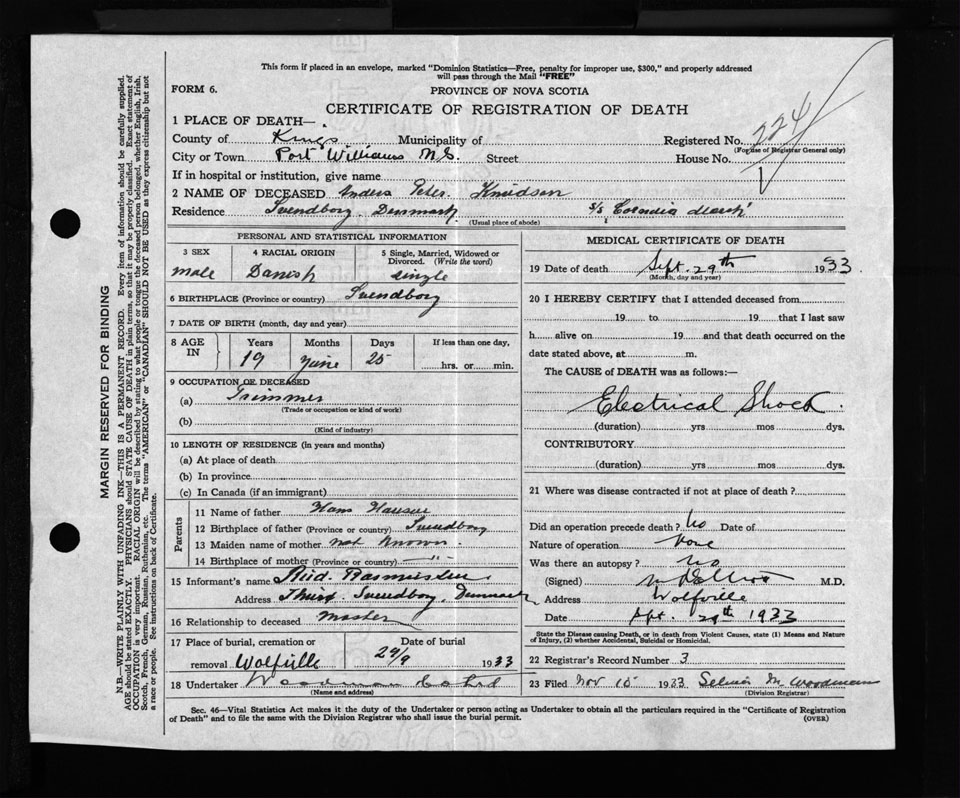 This form if placed in an envelope, marked "Dominion Statistics—Free, penalty for improper use, $300," and properly addressed
will pass through the Mail "FREE"
FORM 6.
PROVINCE OF NOVA SCOTIA
CERTIFICATE OF REGISTRATION OF DEATH
224
1 PLACE OF DEATH—
County of Kings Municipality of Registered No.
(For use of Registrar General only)
City or Town Port Williams N.S. Street House No.
If in hospital or institution, give name
2 NAME OF DECEASED Anders Peter Knudsen
Residence Svendborg, Denmark s/s Cornelia
(Usual place of abode)
PERSONAL AND STATISTICAL INFORMATION
3 SEX 4 RACIAL ORIGIN 5 Single, Married, Widowed or Divorced. (Write the word)
male Danish single
6 BIRTHPLACE (Province or country) Svendborg
7 DATE OF BIRTH (month, day and year)
8 AGE IN Years Months Days If less than one day,
19 June 25 hrs. or min.
9 OCCUPATION OF DECEASED
(a) Trimmer
(Trade or occupation or kind of work)
(b)
(Kind of industry)
10 LENGTH OF RESIDENCE (in years and months)
(a) At place of death
(b) In province
(c) In Canada (if an immigrant)
Parents
11 Name of father Hans
12 Birthplace of father (Province or country) Svendborg
13 Maiden name of mother not known
14 Birthplace of mother (Province or country) "
15 Informant's name Rasmussen
Address Svendborg, Denmark
16 Relationship to deceased master
17 Place of burial, cremation or removal Wolfville Date of burial 29/9 1933
18 Undertaker Woodman
(Name and address)
MEDICAL CERTIFICATE OF DEATH
19 Date of death Sept. 29th 1933
(Month, day and year)
20 I HEREBY CERTIFY that I attended deceased from
19 to 19 that I last saw
h alive on 19 and that death occurred on the
date stated above, at m.
The CAUSE of DEATH was as follows:—
Electrical Shock.
(duration) yrs mos dys.
CONTRIBUTORY
(duration) yrs mos dys.
21 Where was disease contracted if not at place of death?
Did an operation precede death? No Date of
Nature of operation None
Was there an autopsy? No
(Signed) M.D.
Address Wolfville
Date Sept. 29th 1933
State the Disease causing Death, or in death from Violent Causes, state (1) Means and Nature
of Injury, (2) whether Accidental, Suicidal or Homicidal.
22 Registrar's Record Number 3
23 Filed Nov 15 1933 Selina M. Woodman
(Division Registrar)
Sec. 46—Vital Statistics Act makes it the duty of the Undertaker or person acting as Undertaker to obtain all the particulars required in the "Certificate of Registration
of Death" and to file the same with the Division Registrar who shall issue the burial permit.
(OVER)
MARGIN RESERVED FOR BINDING
N.B.—WRITE PLAINLY WITH UNFADING INK—THIS IS A PERMANENT RECORD. Every item of information should be carefully supplied.
AGE should be stated EXACTLY. PHYSICIANS should STATE CAUSE OF DEATH in plain terms, so that it may be properly classified. Exact statement of
OCCUPATION is very important. RACIAL ORIGIN will be described by stating to what people or tongue the deceased person belonged, whether English, Irish,
Scotch, French, German, Russian, Ruthenian, etc. The terms "AMERICAN" or "CANADIAN" SHOULD NOT BE USED as they express citizenship but not
a race or people. See instructions on back of Certificate.